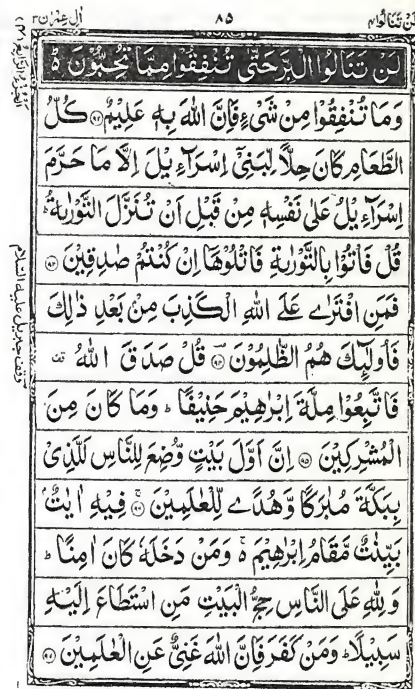 لن تنالوا ٤
٨٥
اٰل عمرٰن ٣
لَنْ تَنَالُوا الْبِرَّ حَتّٰى تُنْفِقُوْا مِمَّا تُحِبُّوْنَ ۵ؕ
وَمَا تُنْفِقُوْا مِنْ شَیْءٍ فَاِنَّ اللّٰهَ بِهٖ عَلِیْمٌ ﴿۹۲﴾ كُلُّ
الطَّعَامِ كَانَ حِلًّا لِّبَنِیْۤ اِسْرَآءِیْلَ اِلَّا مَا حَرَّمَ
اِسْرَآءِیْلُ عَلٰى نَفْسِهٖ مِنْ قَبْلِ اَنْ تُنَزَّلَ التَّوْرٰىةُ ؕ
قُلْ فَاْتُوْا بِالتَّوْرٰىةِ فَاتْلُوْهَاۤ اِنْ كُنْتُمْ صٰدِقِیْنَ ﴿۹۳﴾
فَمَنِ افْتَرٰى عَلَى اللّٰهِ الْكَذِبَ مِنْۢ بَعْدِ ذٰلِكَ
فَاُولٰٓىِٕكَ هُمُ الظّٰلِمُوْنَ ﴿۹۴﴾ قُلْ صَدَقَ اللّٰهُ
فَاتَّبِعُوْا مِلَّةَ اِبْرٰهِیْمَ حَنِیْفًا ؕ وَمَا كَانَ مِنَ
الْمُشْرِكِیْنَ ﴿۹۵﴾ اِنَّ اَوَّلَ بَیْتٍ وُّضِعَ لِلنَّاسِ لَلَّذِیْ
بِبَكَّةَ مُبٰرَكًا وَّهُدًى لِّلْعٰلَمِیْنَ ﴿۹۶﴾ فِیْهِ اٰیٰتٌۢ
بَیِّنٰتٌ مَّقَامُ اِبْرٰهِیْمَ ۵ۚ وَمَنْ دَخَلَهٗ كَانَ اٰمِنًا ؕ
وَلِلّٰهِ عَلَى النَّاسِ حِجُّ الْبَیْتِ مَنِ اسْتَطَاعَ اِلَیْهِ
سَبِیْلًا ؕ وَمَنْ كَفَرَ فَاِنَّ اللّٰهَ غَنِیٌّ عَنِ الْعٰلَمِیْنَ ﴿۹۷﴾
وقف جبریل علیه السلام